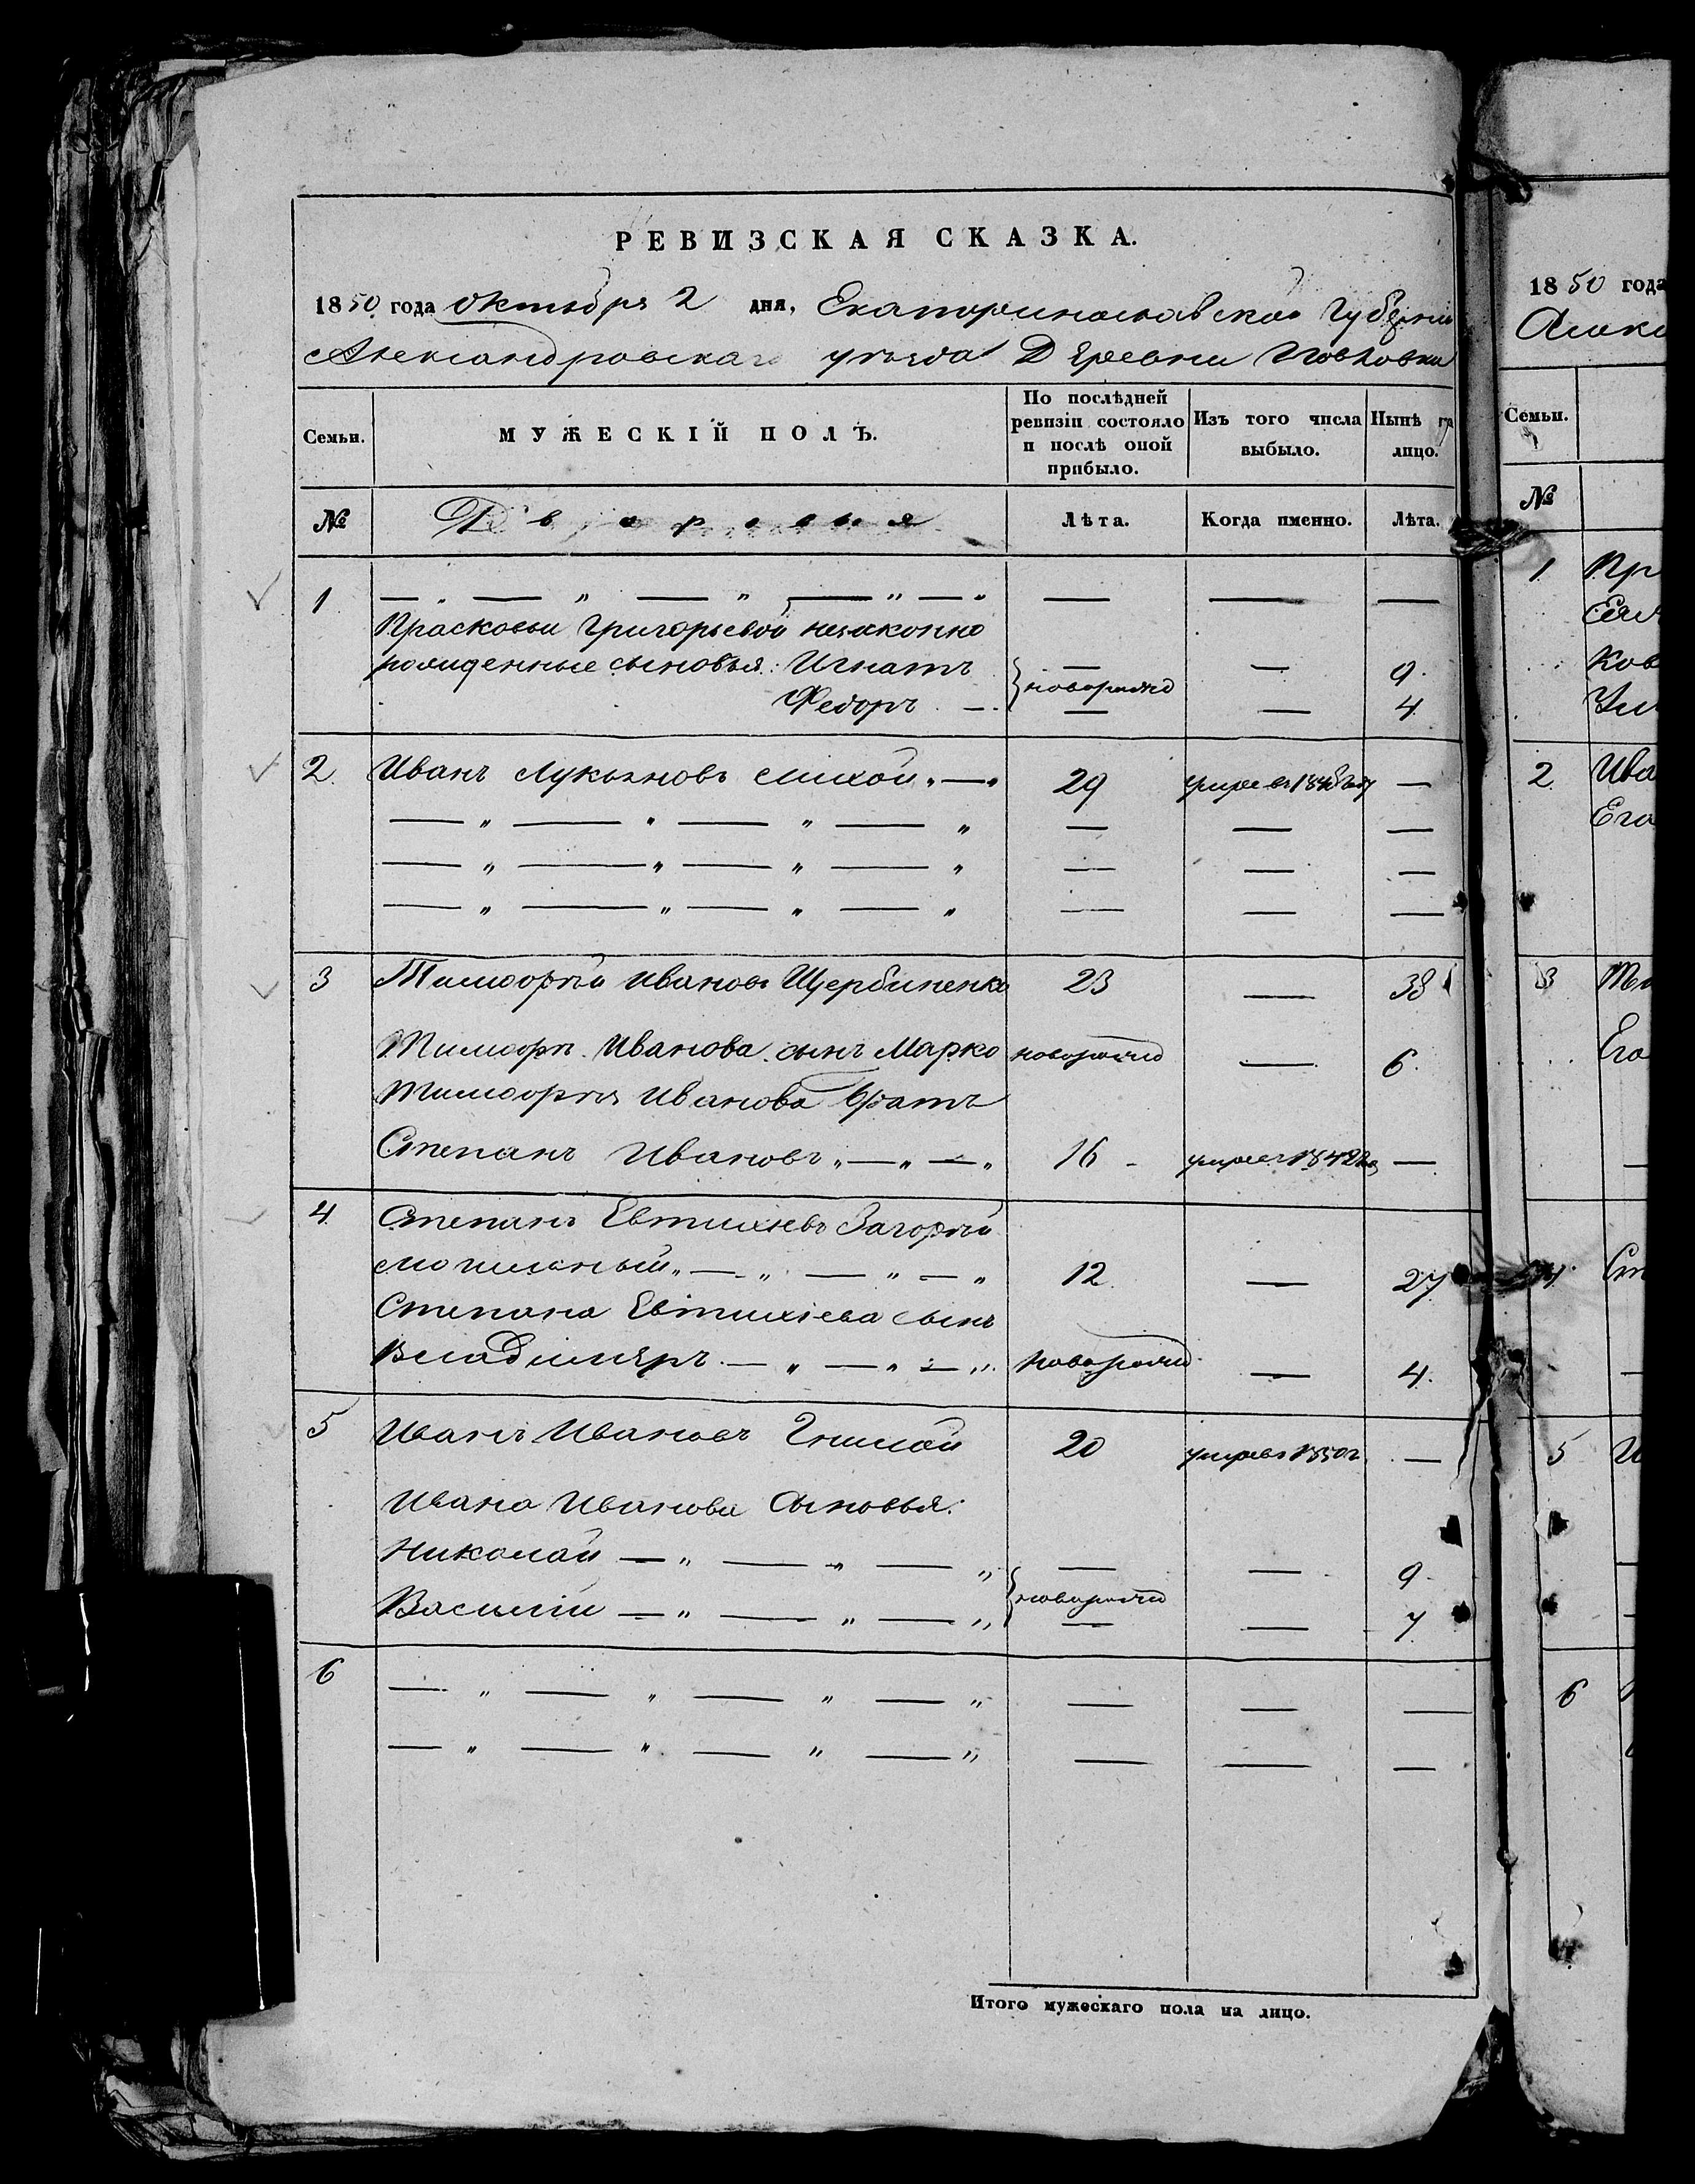 РЕВИЗСКАЯ СКАЗКА.
1850 года октября 2 дня, Екатеринославской губерніи
Александровскаго уѣзда Деревни
Семьи. МУЖЕСКІЙ ПОЛЪ. По послѣдней ревизіи состояло и послѣ оной прибыло. Изъ того числа выбыло. Нынѣ на лицо.
№ Дворовыя Лѣта. Когда именно. Лѣта.
1 — „ — „ — „ — „ — „ — — —
Прасковьи Григорьевой незаконно
рожденные сыновья: Игнатъ — — 9
новорожд
Федоръ — — — 4
2 Иванъ Лукьяновъ Лихой „ — „ 29 —
— „ — „ — „ — „ — — —
— „ — „ — „ — „ — — —
— „ — „ — „ — „ — — —
3 Тимофѣй Ивановъ Щербиненко 23 — 38
Тимофѣя Иванова сынъ Марко новорожд — 6
Тимофѣя Иванова братъ
Степанъ Ивановъ „ — „ — „ 16 —
4 Степанъ Евтихіевъ Загорѣй
„ — „ — „ — „ 12 — 27
Степана Евтихіева сынъ
Владимеръ — „ — „ — „ новорожд — 4
5 Иванъ Ивановъ Гнилой 20 умре въ 1850 г. —
Ивана Иванова сыновья:
Николай — „ — „ — „ — — 9
новорожд
Василій — „ — „ — „ — — 7
6 — „ — „ — „ — „ — — —
— „ — „ — „ — „ — — —
Итого мужескаго пола на лицо.
1850 года
Семьи.
№
1 Пр
2 Ива
Его
3 Ти
Его
4 Ст
5 И
6